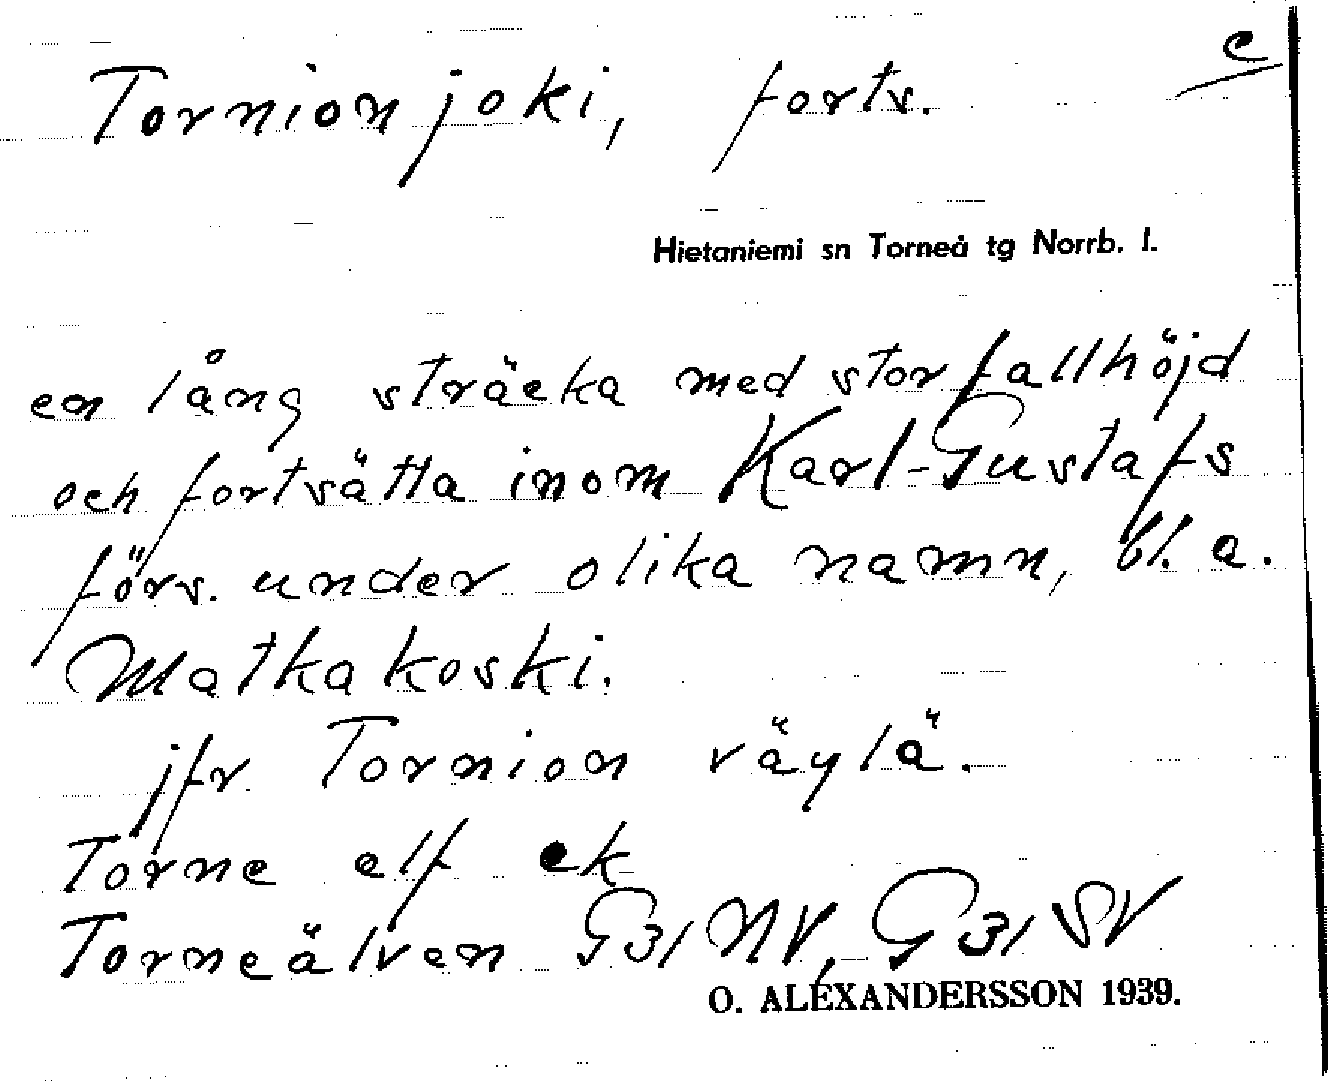 Tornionjoki, forts. c
Hietaniemi sn Torneå tg Norrb. l.
en lång sträcka med stor fallhöjd
och fortsätta inom Karl-Gustafs
förs. under olika namn, bl. a.
Matkakoski.
jfr Tornion väylä.
Torne elf ek
Torneälven G31NV, G31SV
O. ALEXANDERSSON 1939.